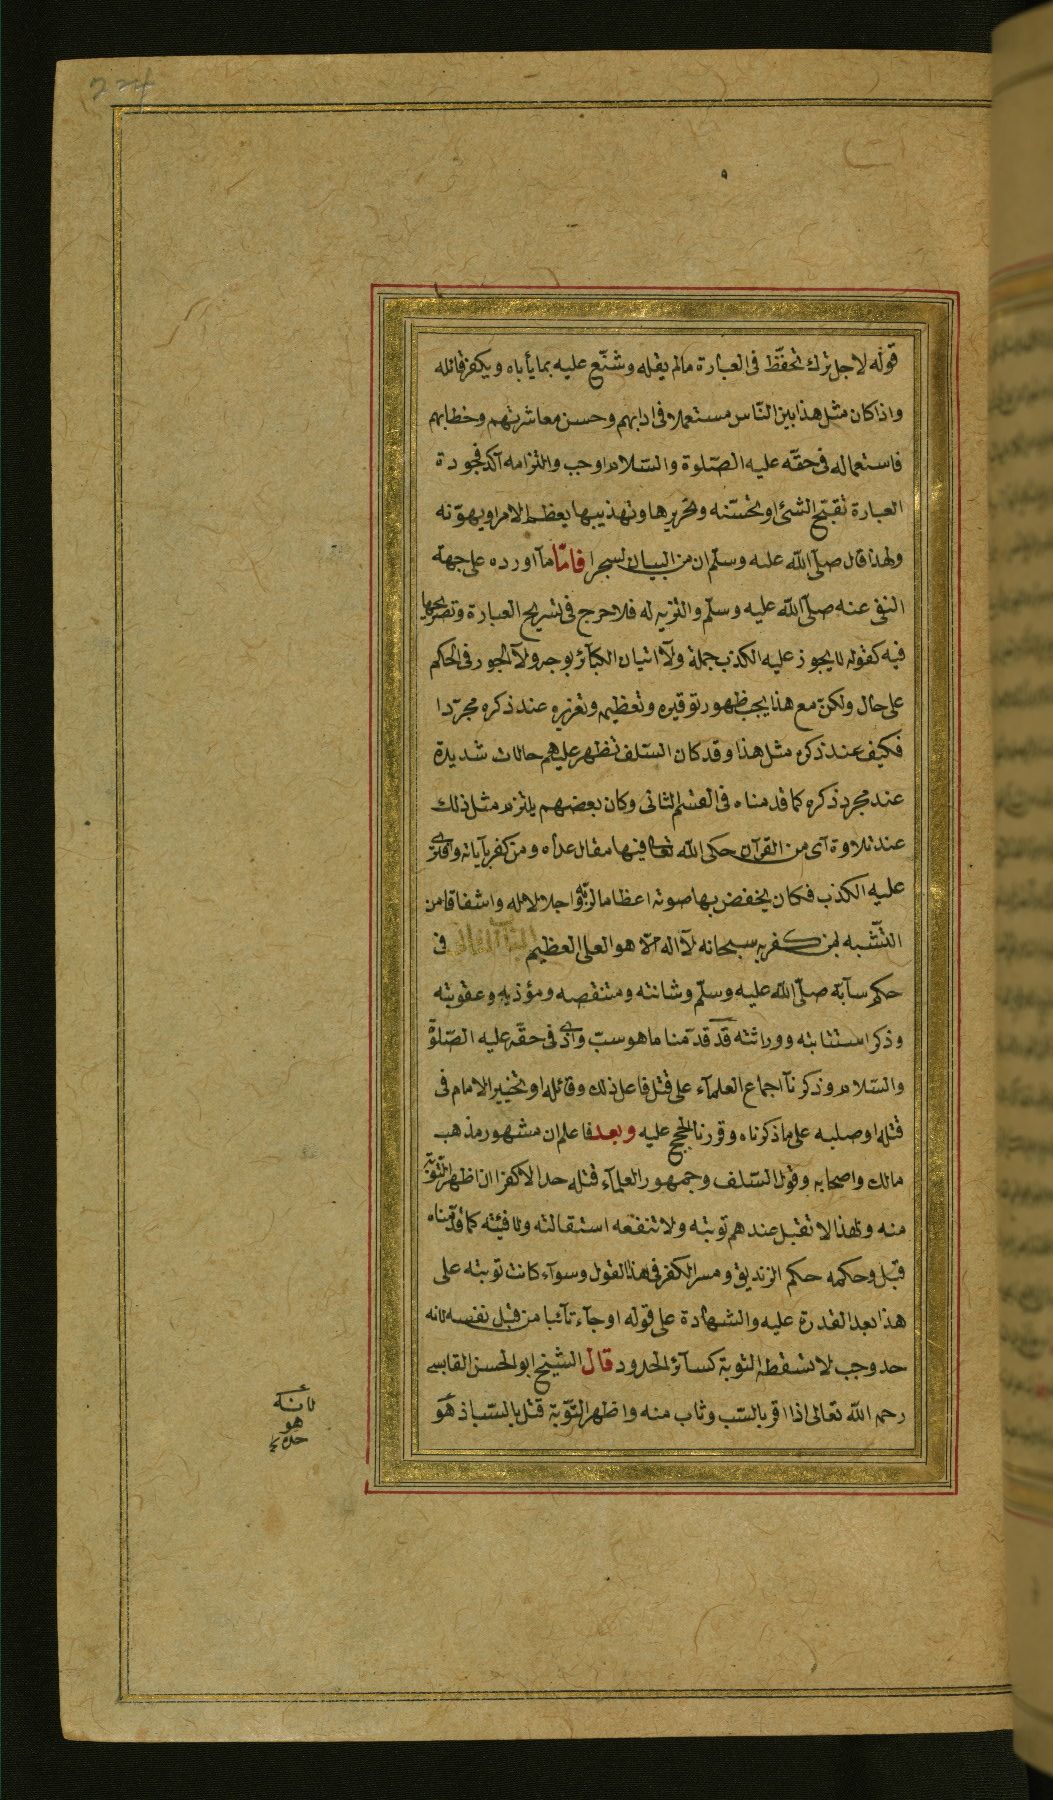 قوله لاجل ترك تحفّظ فى العبارة ما لم يقله وشنّع عليه بما يأباه ويكفر قائله
واذا كان مثل هذا بين النّاس مستعملا فى ادابهم وحسن معاشرتهم وخطابهم
فاستعماله فى حقّه عليه الصّلوة والسّلام اوجب والتزامه آكد فجودة
العبارة تقبّح الشئ او تحسّنه وتحريرها وتهذيبها يعظم الامر او يهوّنه
ولهذا قال صلّى اللّه عليه وسلّم ان من البيان لسحرا فامّا ما آورده على جهة
النفى عنه صلّى اللّه عليه وسلّم والتنزيه له فلا حرج فى تسريح العبارة وتصريحها
فيه كقوله لا يجوز عليه الكذب جملة ولا اتيان الكبآئر بوجه ولا الجور فى الحكم
على حال ولكن مع هذا يجب ظهور توقيره وتعظيمه وتعزيره عند ذكره مجرّدا
فكيف عند ذكره مثل هذا وقد كان السّلف تظهر عليهم حالات شديدة
عند مجرد ذكره كما قدمناه فى القسم الثانى وكان بعضهم يلتزم مثل ذلك
عند تلاوة آى من القرآن حكى اللّه تعا فيها مقال عداه ومن كفر بآياته وافترى
عليه الكذب فكان يخفض بها صوته اعظاما لربّه واجلالا له واشفاقا من
التّشبه بمن كفر به سبحانه لآ اله الّا هو العلى العظيم الباب الثانى فى
حكم سآبه صلّى اللّه عليه وسلّم وشانئه ومتنقصه ومؤذيه وعقوبته
وذكر استتابته ووراثته قد قدّمنا ما هو سبّ واذى فى حقّه عليه الصّلوة
والسّلام وذكرنآ اجماع العلمآء على قتل فاعل ذلك وقائله او تخيير الامام فى
قتله او صلبه على ما ذكرناه وقررنا الحجج عليه وبعد فاعلم ان مشهور مذهب
مالك واصحابه وقول السّلف وجمهور العلمآء قتله حدا لا كفرا ان اظهر التّوبة
منه ولهذا لا تقبل عندهم توبته ولا تنفعه استقالته ولا فيئته كما قدّمناه
قبل وحكمه حكم الزنديق ومسر الكفر فى هذا القول وسوآء كانت توبته على
هذا بعد القدرة عليه والشهادة على قوله او جآء تآئبا من قبل نفسه لانه
حد وجب لا تسقطه التوبة كسآئر الحدود قال الشيخ ابو الحسن القابسى
رحمه اللّه تعالى اذا اقر بالسّب وتاب منه واظهر التّوبة قتل بالسّب اذ هو
لأنه
هو
حده